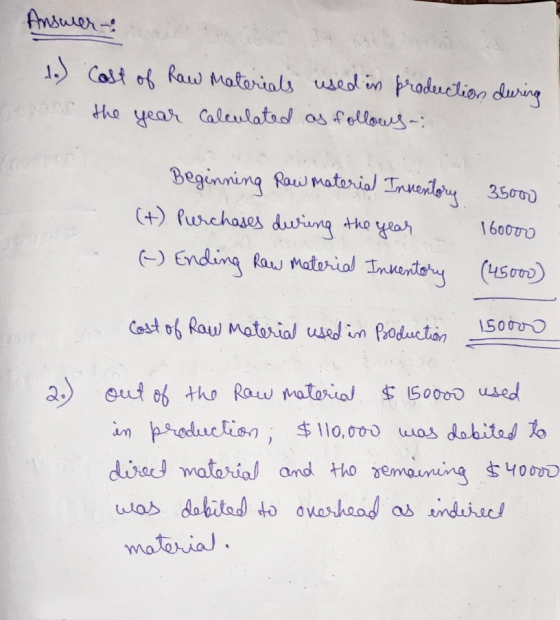 Answer-:
1.) Cost of Raw Materials used in production during
the year calculated as follows-:
Beginning Raw material Inventory 35000
(+) Purchases during the year 160000
(-) Ending Raw Material Inventory (45000)
Cost of Raw Material used in Production 150000
2.) out of the Raw material $ 150000 used
in production, $110,000 was debited to
direct material and the remaining $40000
was debited to overhead as indirect
material.